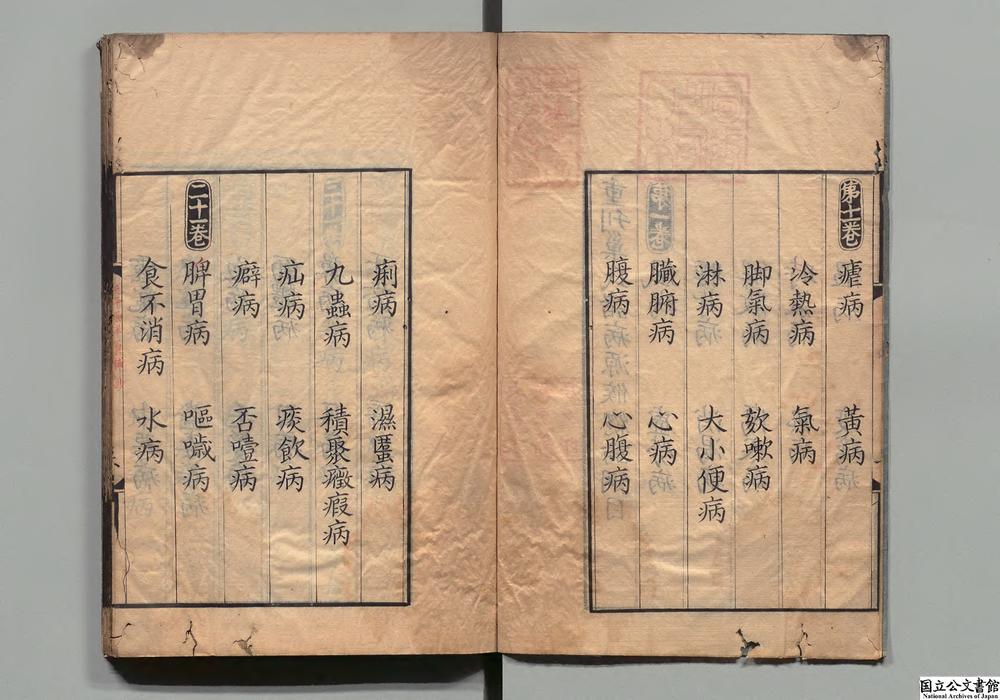 第十一卷
瘧病 黃病
冷熱病 氣病
脚氣病 欬嗽病
淋病 大小便病
臟腑病 心病
腹病 心腹病
痢病 濕䘌病
九蟲病 積聚癥瘕病
疝病 痰飲病
癖病 否噎病
二十一卷
脾胃病 嘔噦病
食不消病 水病
国立公文書館
National Archives of Japan